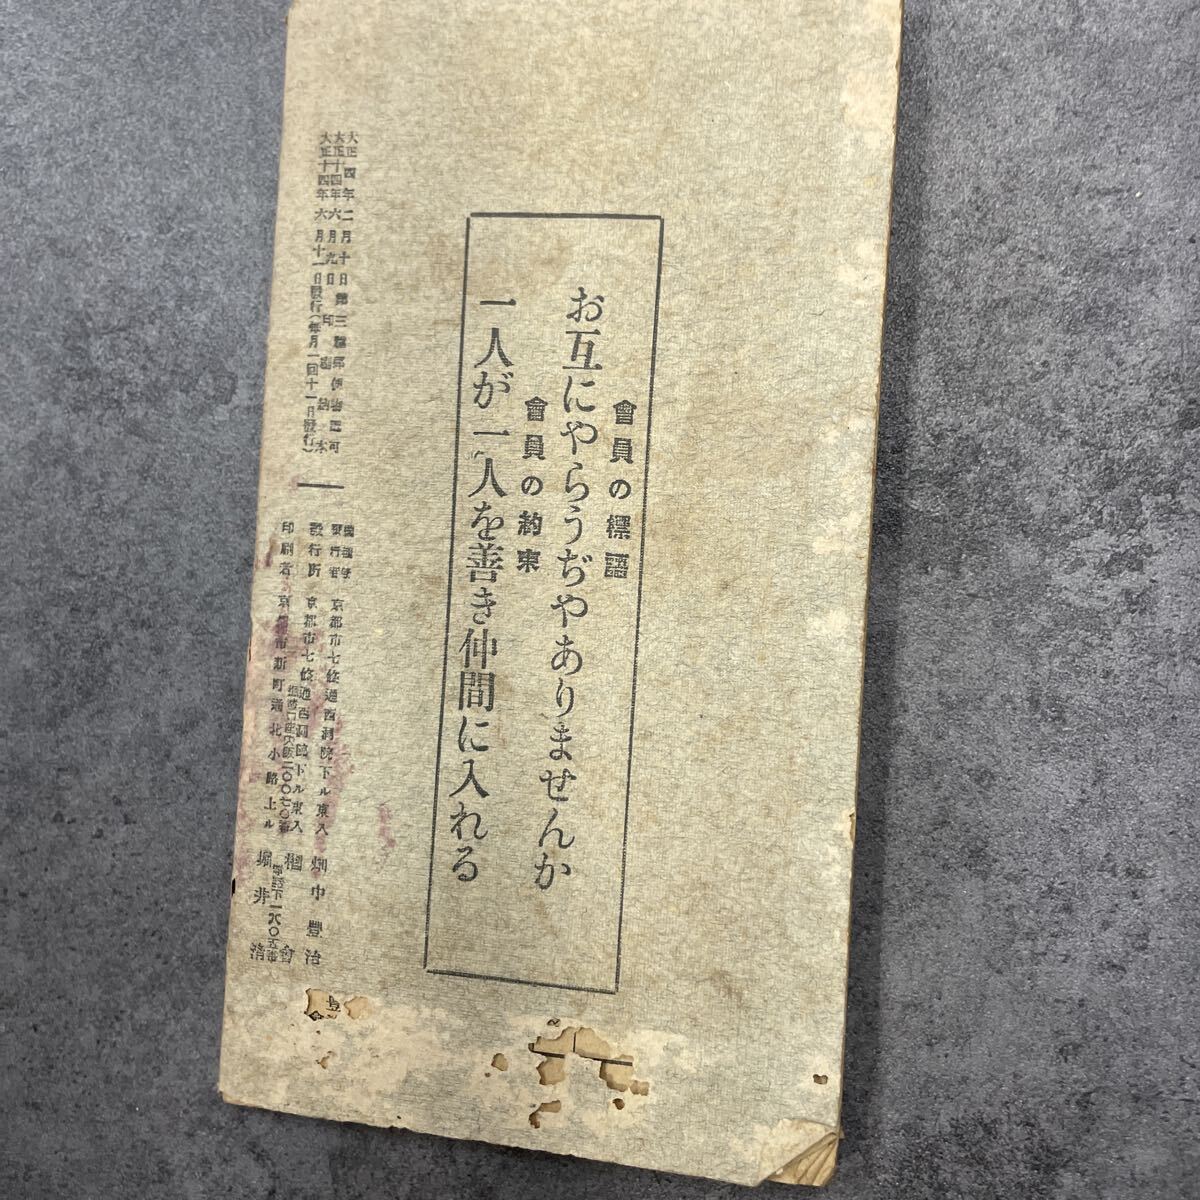 會員の標語
お互にやらうぢやありませんか
會員の約束
一人が一人を善き仲間に入れる
大正四年二月十日第三種郵便物認可
大正十四年六月九日印刷納本
大正十四年六月十一日發行(毎月一回十一日發行)
京都市七條通西洞院下ル東入 畑中豐治
發行所 京都市七條通西洞院下ル東入
印刷者 京都市新町通北小路上ル 堀井清